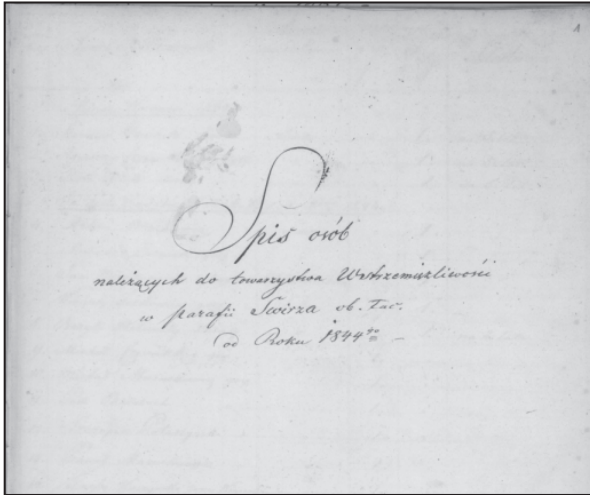 1
Spis osób
należących do towarzystwa Wstrzemięźliwości
w parafii Świrza ob. Łac.
od Roku 1844go